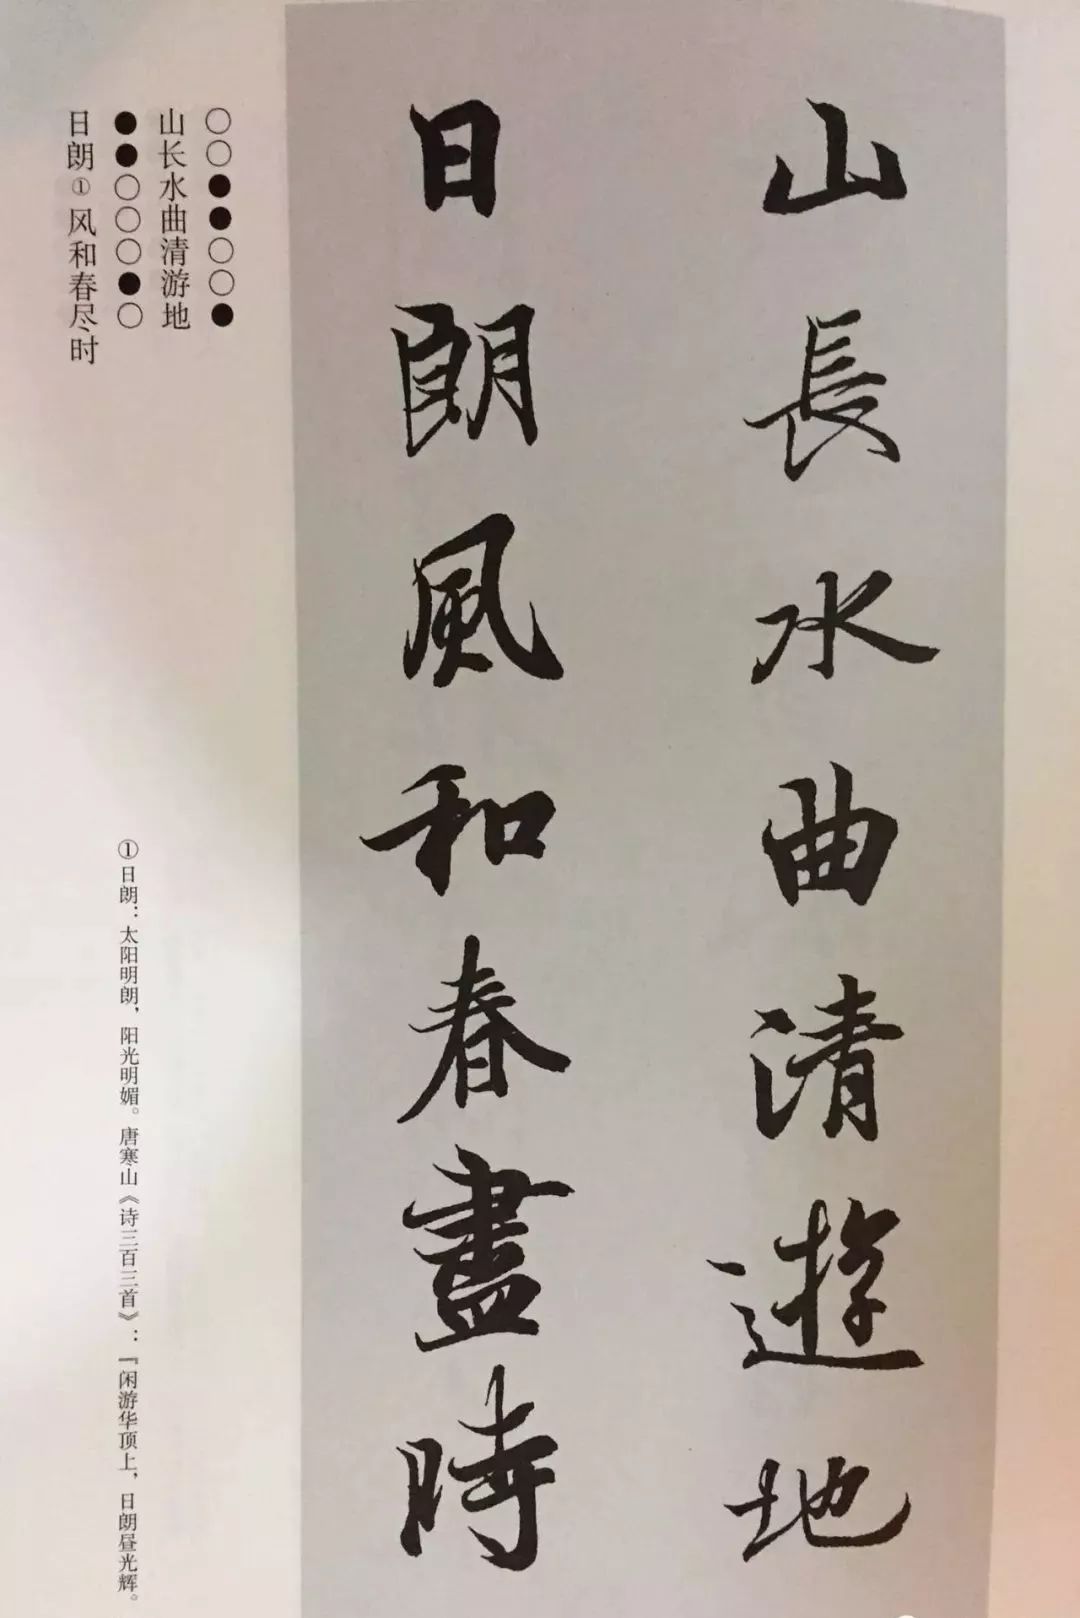 山長水曲清遊地
日朗風和春盡時
○○●●○○●
山长水曲清游地
●●○○○●○
日朗①风和春尽时
①日朗：太阳明朗，阳光明媚。唐寒山《诗三百三首》：『闲游华顶上，日朗昼光辉。